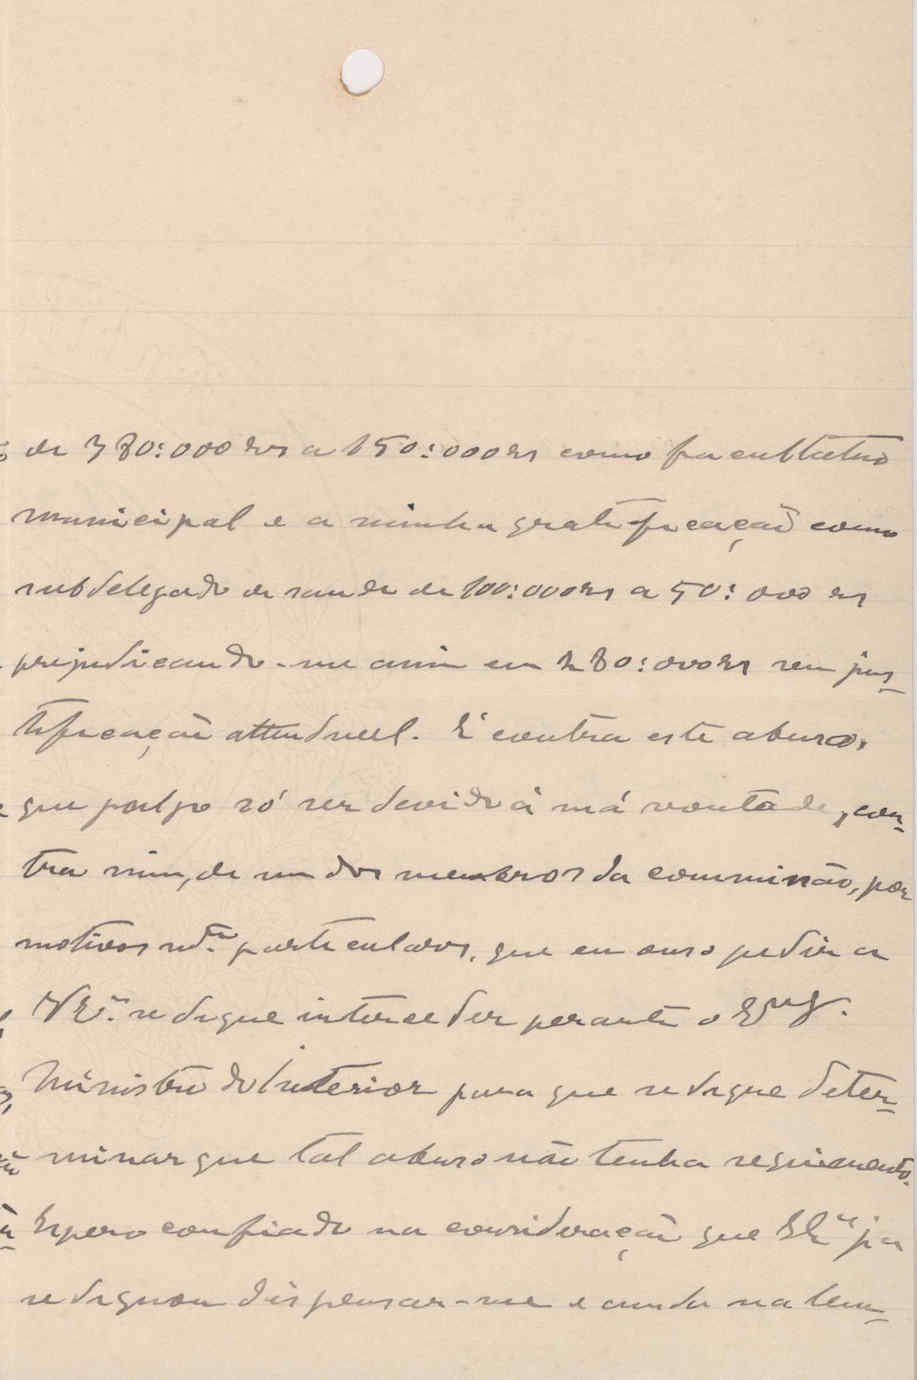 de 380:000 rs a 150:000 rs como facultativo
municipal e a minha gratificação como
subdelegado de saude de 100:000 rs a 50:000 rs
prejudicando-me assim em 280:000 rs sem jus-
tificação attendivel. É contra este abuso,
que julgo só ser devido á má vontade, con-
tra mim, de um dos membros da commissão, por
motivos particulares, que eu ouso pedir a
V Exª. se digne interceder perante o Exmo
Ministro do Interior para que se digne deter-
minar que tal abuso não tenha seguimento.
Espero confiado na consideração que Exª já
se dignou dispensar-me e ainda na lem-